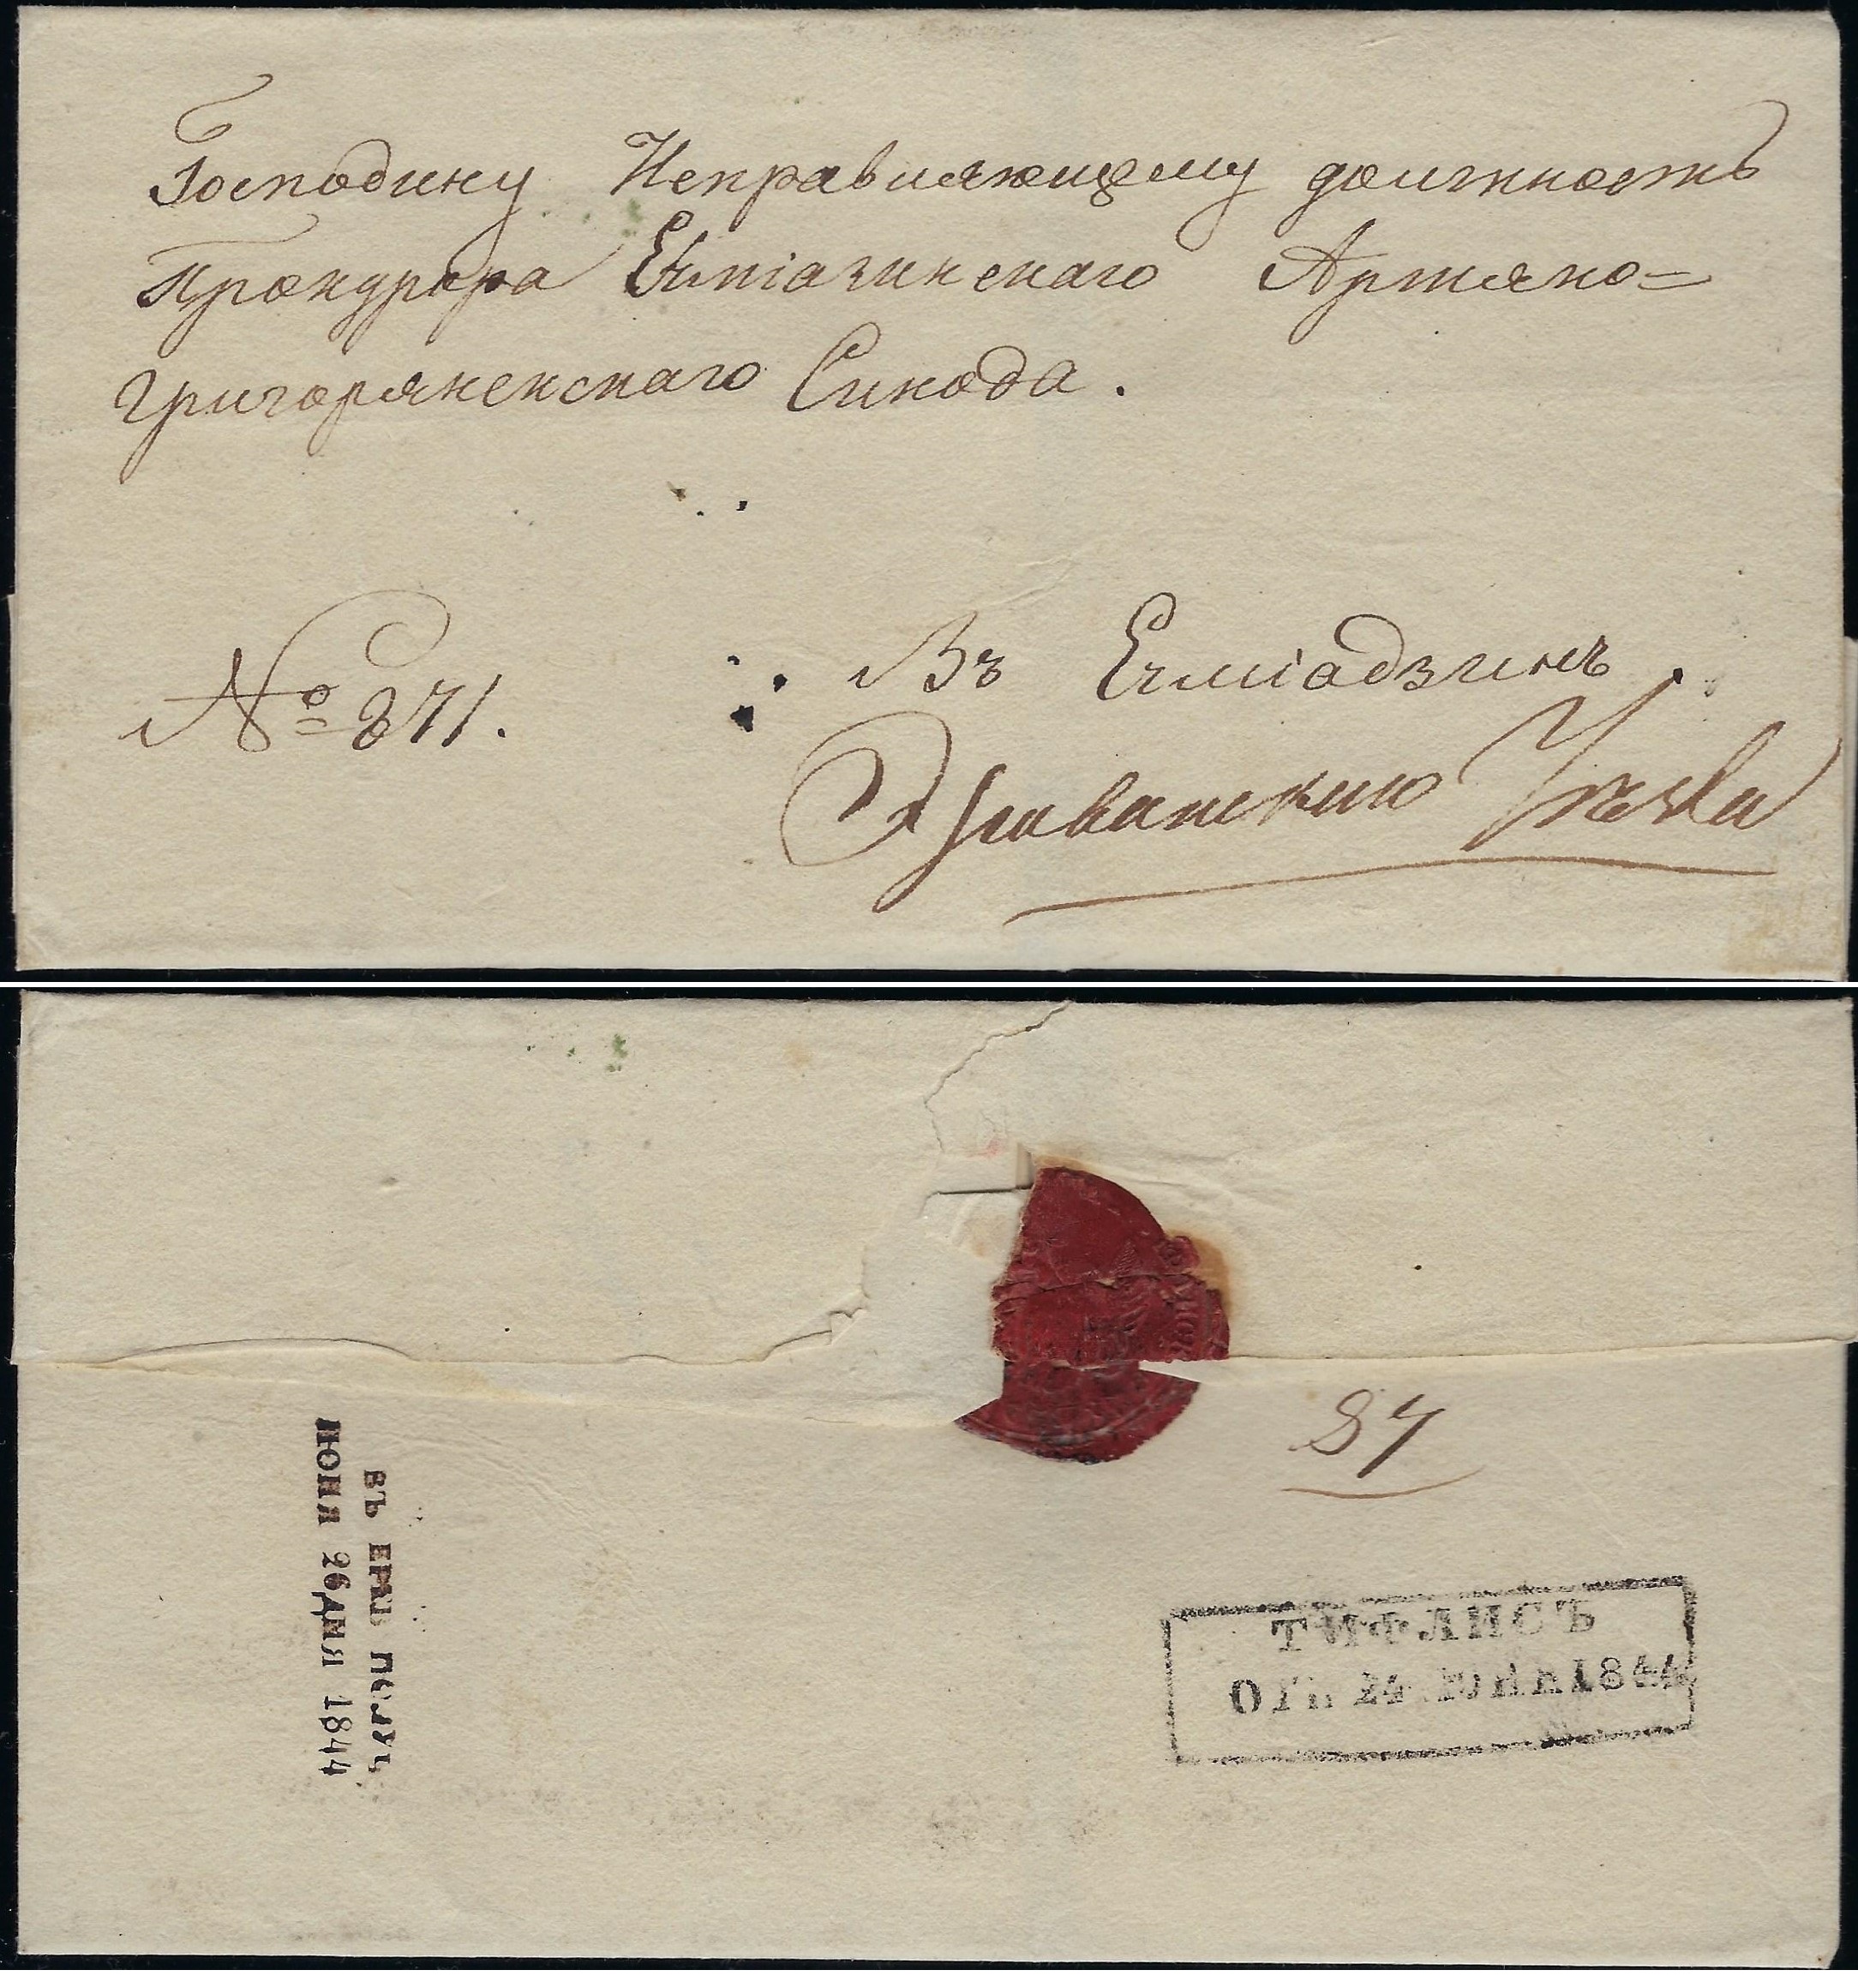 Господину Исправляющему должность
Прокурора Ечміазинскаго Армяно=
Григоріянскаго Синода.
№ 271.
Въ Ечміадзинъ.
Эриванскаго Уезда
87
ВЪ ЕРИВ ПОЛУЧ
ІЮНЯ 26 ДНЯ 1844
ТИФЛИСЪ
ОТП 24 ІЮНЯ 1844